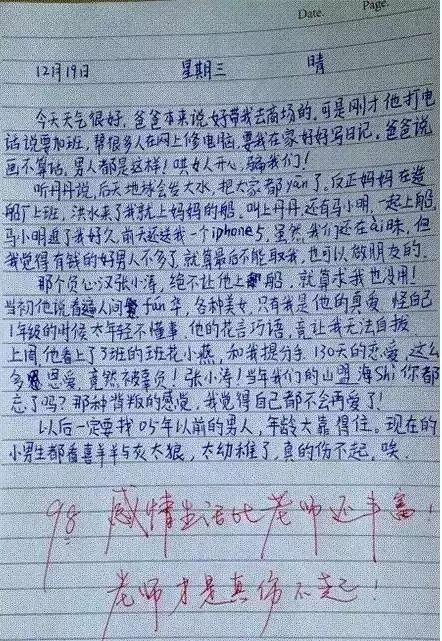 Date.
Page.
12月19日 星期三 晴
今天天气很好，爸爸本来说好带我去商场的，可是刚才他打电
话说要加班，帮很多人在网上修电脑，要我在家好好写日记。爸爸说
画不算话，男人都是这样！哄女人开心，骗我们！
听丹丹说，后天地球会发大水，把大家都yān了，反正妈妈在造
船厂上班，洪水来了我就上妈妈的船，叫上丹丹，还有马小明，一起上船，
马小明追了我好久，前天还送我一个iphone5，虽然我们还在ài昧，但
我觉得有钱的好男人不多了，就算最后不能取我，也可以做朋友的。
那个负心汉张小涛，绝不让他上船，就算求我也没用！
当初他说看遍人间fán华，各种美女，只有我是他的真爱，怪自己
1年级的时候太年轻不懂事，他的花言巧语，竟让我无法自拔
上周他看上了3班的班花小燕，和我提分手，130天的恋爱，这么
多恩爱，竟然被辜负！张小涛！当年我们的山盟海Shì你都
忘了吗？那种背叛的感觉，我觉得自己都不会再爱了！
以后一定要找05年以前的男人，年龄大靠得住。现在的
小男生都看喜羊羊与灰太狼，太幼稚了，真的伤不起，唉。
98 感情生活比老师还丰富！
老师才是真伤不起！